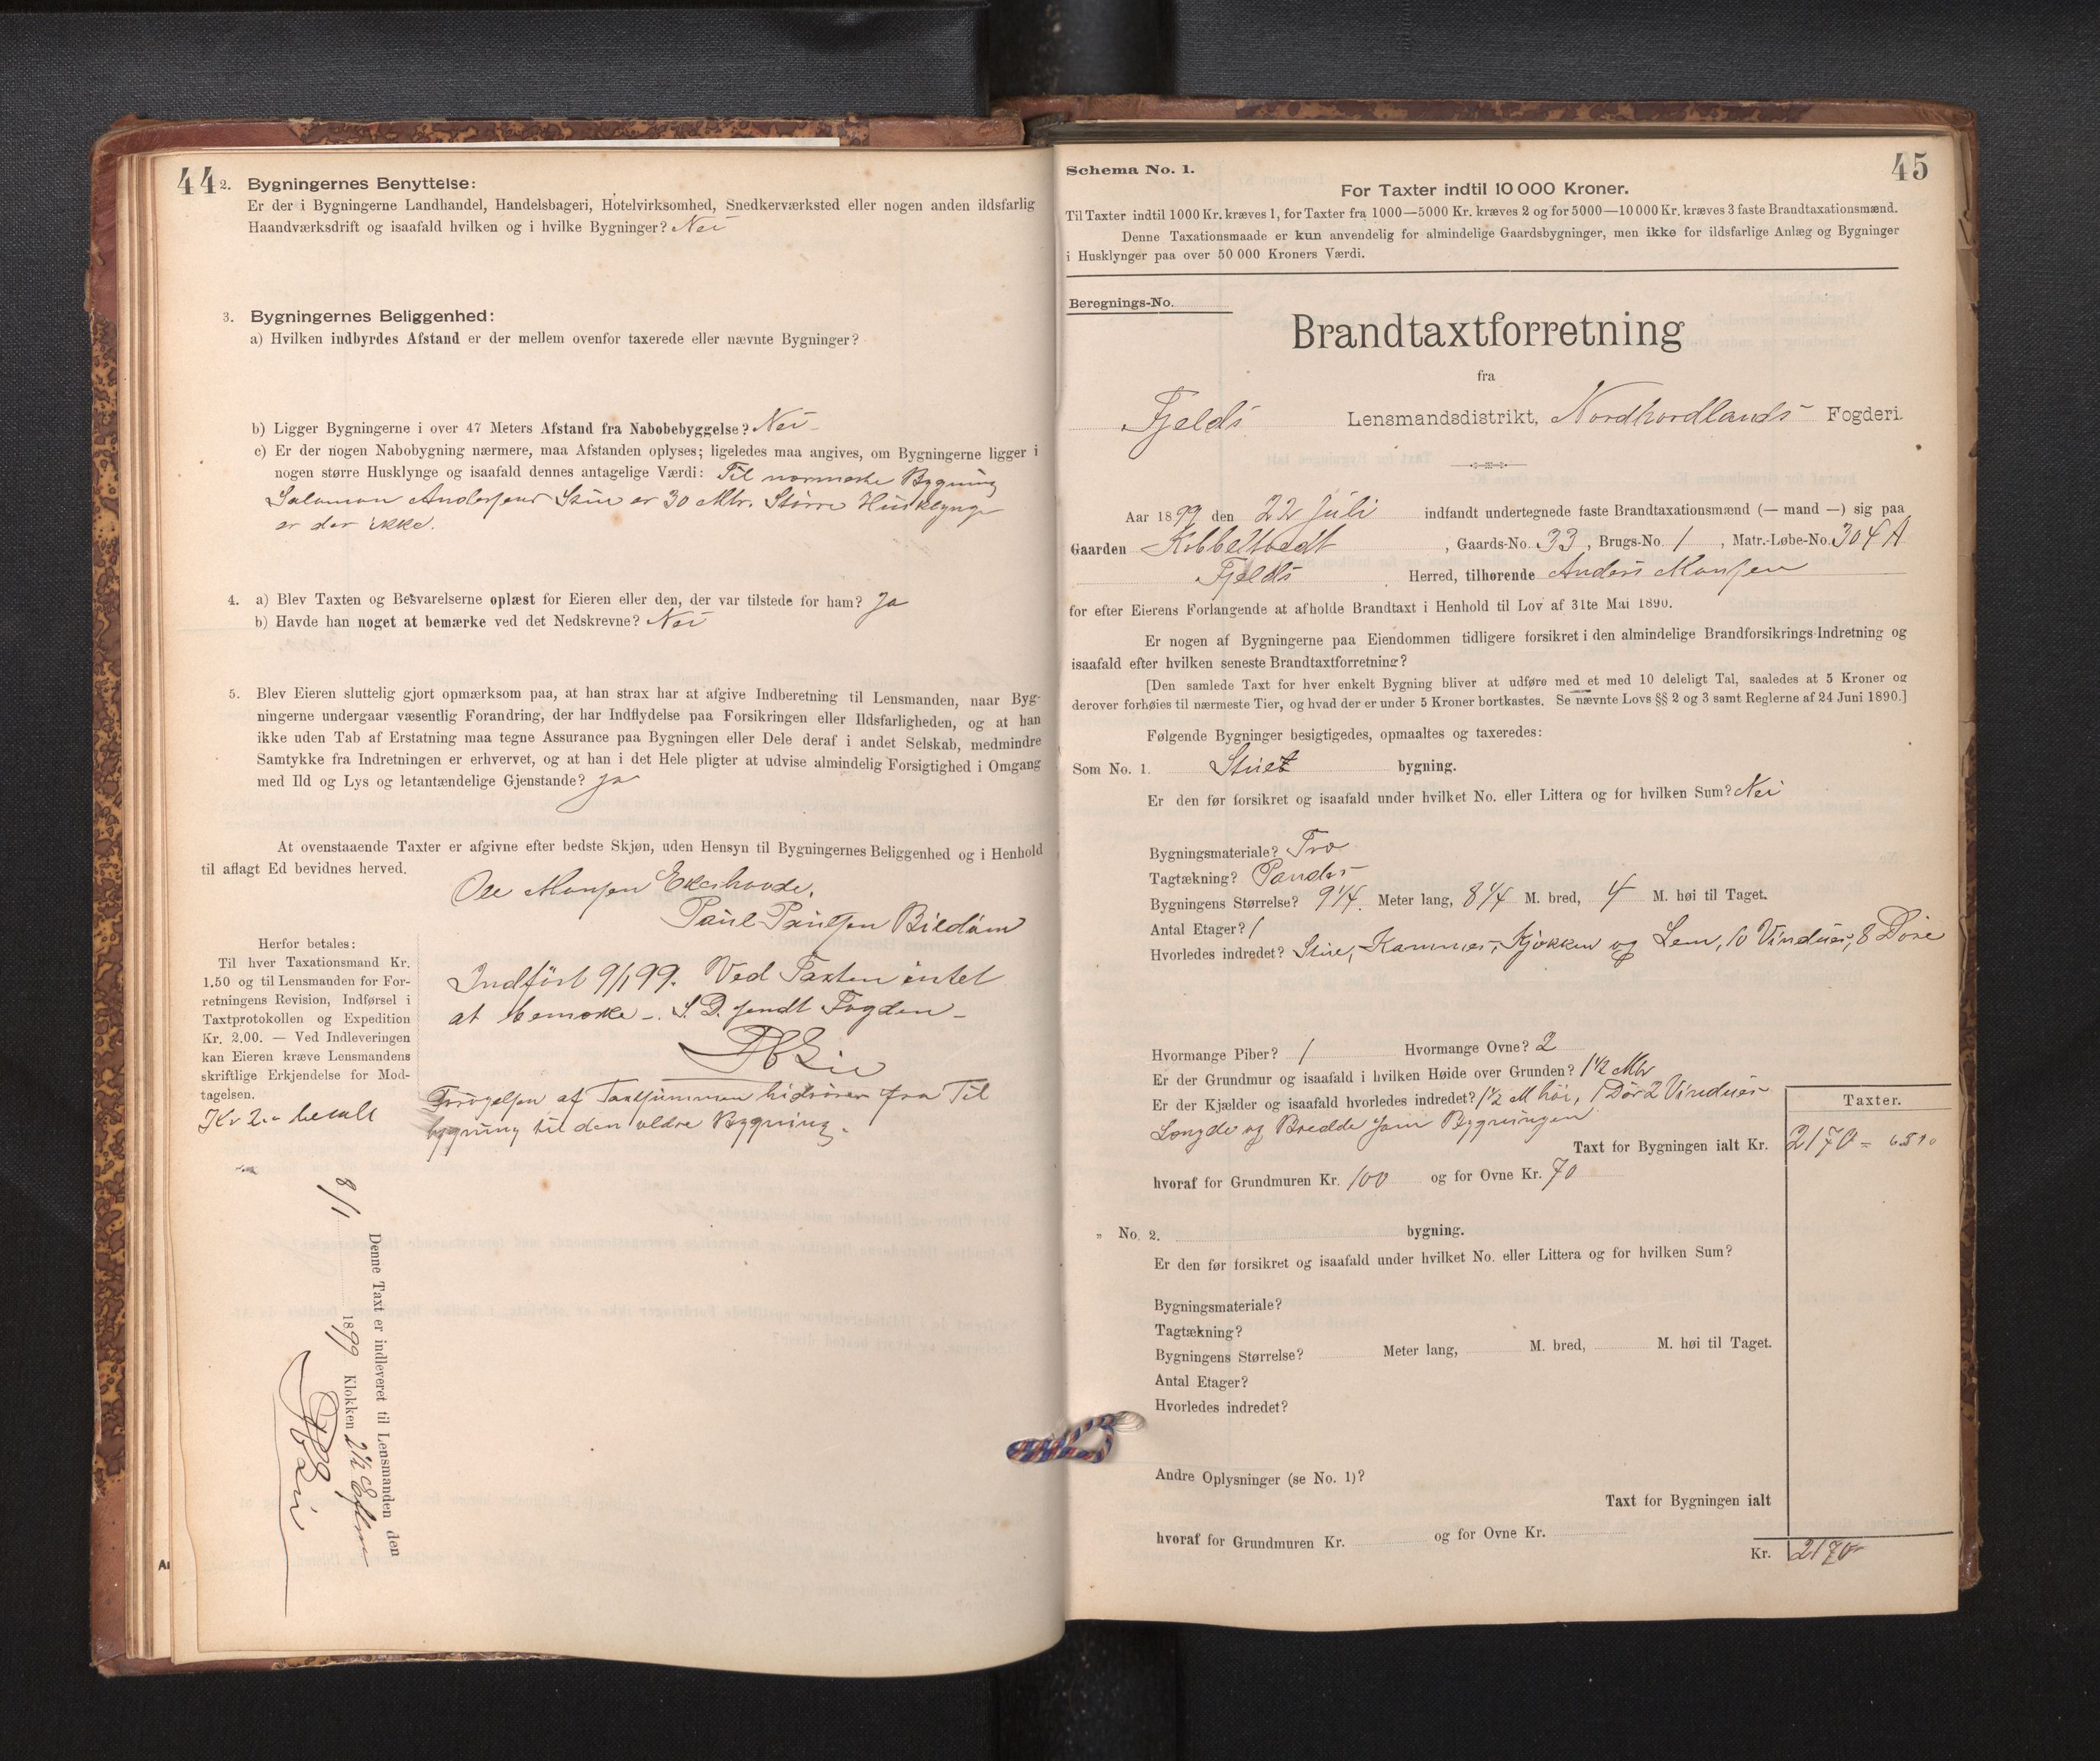 44
2. Bygningernes Benyttelse:
Er der i Bygningerne Landhandel, Handelsbageri, Hotelvirksomhed, Snedkerværksted eller nogen anden ildsfarlig
Haandværksdrift og isaafald hvilken og i hvilke Bygninger? Nei
3. Bygningernes Beliggenhed:
a) Hvilken indbyrdes Afstand er der mellem ovenfor taxerede eller nævnte Bygninger?
b) Ligger Bygningerne i over 47 Meters Afstand fra Nabobebyggelse? Nei
c) Er der nogen Nabobygning nærmere, maa Afstanden oplyses; ligeledes maa angives, om Bygningerne ligger i
nogen større Husklynge og isaafald dennes antagelige Værdi: Til nærmeste Bygning
Salamon Andersens Stue er 30 Mtr. Større Husklynge
er der ikke.
4. a) Blev Taxten og Besvarelserne oplæst for Eieren eller den, der var tilstede for ham? Ja
b) Havde han noget at bemærke ved det Nedskrevne? Nei
5. Blev Eieren sluttelig gjort opmærksom paa, at han strax har at afgive Indberetning til Lensmanden, naar Byg-
ningerne undergaar væsentlig Forandring, der har Indflydelse paa Forsikringen eller Ildsfarligheden, og at han
ikke uden Tab af Erstatning maa tegne Assurance paa Bygningen eller Dele deraf i andet Selskab, medmindre
Samtykke fra Indretningen er erhvervet, og at han i det Hele pligter at udvise almindelig Forsigtighed i Omgang
med Ild og Lys og letantændelige Gjenstande? Ja
At ovenstaaende Taxter er afgivne efter bedste Skjøn, uden Hensyn til Bygningernes Beliggenhed og i Henhold
til aflagt Ed bevidnes herved.
Ole Monsen Ekerhovde.
Paul Paulsen Bildøen
Herfor betales:
Til hver Taxationsmand Kr.
1.50 og til Lensmanden for For-
retningens Revision, Indførsel i
Taxtprotokollen og Expedition
Kr. 2.00. — Ved Indleveringen
kan Eieren kræve Lensmandens
skriftlige Erkjendelse for Mod-
tagelsen.
Kr 2.- betalt
Indført 9/1 99. Ved Taxten intet
at bemærke -. S. D. sendt Fogden -
Forøgelsen af Taxtsummen hidrører fra Til
bygning til den ældre Bygning.
Denne Taxt er indleveret til Lensmanden den
8/1 1899 Klokken 2 1/2 Eftm
45
Schema No. 1.
For Taxter indtil 10 000 Kroner.
Til Taxter indtil 1000 Kr. kræves 1, for Taxter fra 1000—5000 Kr. kræves 2 og for 5000—10 000 Kr. kræves 3 faste Brandtaxationsmænd.
Denne Taxationsmaade er kun anvendelig for almindelige Gaardsbygninger, men ikke for ildsfarlige Anlæg og Bygninger
i Husklynger paa over 50 000 Kroners Værdi.
Beregnings-No.
Brandtaxtforretning
fra
Fjelds Lensmandsdistrikt, Nordhordlands Fogderi.
Aar 1899 den 22 Juli indfandt undertegnede faste Brandtaxationsmænd (— mand —) sig paa
Gaarden Kobbeltvedt, Gaards-No. 33, Brugs-No. 1, Matr.-Løbe-No. 304 A
Fjelds Herred, tilhørende Anders Monsen
for efter Eierens Forlangende at afholde Brandtaxt i Henhold til Lov af 31te Mai 1890.
Er nogen af Bygningerne paa Eiendommen tidligere forsikret i den almindelige Brandforsikrings-Indretning og
isaafald efter hvilken seneste Brandtaxtforretning?
[Den samlede Taxt for hver enkelt Bygning bliver at udføre med et med 10 deleligt Tal, saaledes at 5 Kroner og
derover forhøies til nærmeste Tier, og hvad der er under 5 Kroner bortkastes. Se nævnte Lovs §§ 2 og 3 samt Reglerne af 24 Juni 1890.]
Følgende Bygninger besigtigedes, opmaaltes og taxeredes:
Som No. 1. Stue bygning.
Er den før forsikret og isaafald under hvilket No. eller Littera og for hvilken Sum? Nei
Bygningsmateriale? Træ
Tagtækning? Pander
Bygningens Størrelse? 9 1/4. Meter lang, 8 1/4 M. bred, 4 M. høi til Taget.
Antal Etager? 1
Hvorledes indredet? Stue, Kammer, Kjøkken og Lem, 10 Vinduer, 8 Døre
Hvormange Piber? 1 Hvormange Ovne? 2
Er der Grundmur og isaafald i hvilken Høide over Grunden? 1 1/2 Mtr
Er der Kjælder og isaafald hvorledes indredet? 1 1/2 M høi, 1 Dør 2 Vinduer
Længde og Bredde som Bygningen
Taxter.
Taxt for Bygningen ialt Kr. 2170 =
hvoraf for Grundmuren Kr. 100 og for Ovne Kr. 70
„ No. 2. bygning.
Er den før forsikret og isaafald under hvilket No. eller Littera og for hvilken Sum?
Bygningsmateriale?
Tagtækning?
Bygningens Størrelse? Meter lang, M. bred, M. høi til Taget.
Antal Etager?
Hvorledes indredet?
Andre Oplysninger (se No. 1)?
Taxt for Bygningen ialt
hvoraf for Grundmuren Kr. og for Ovne Kr.
Kr. 2170